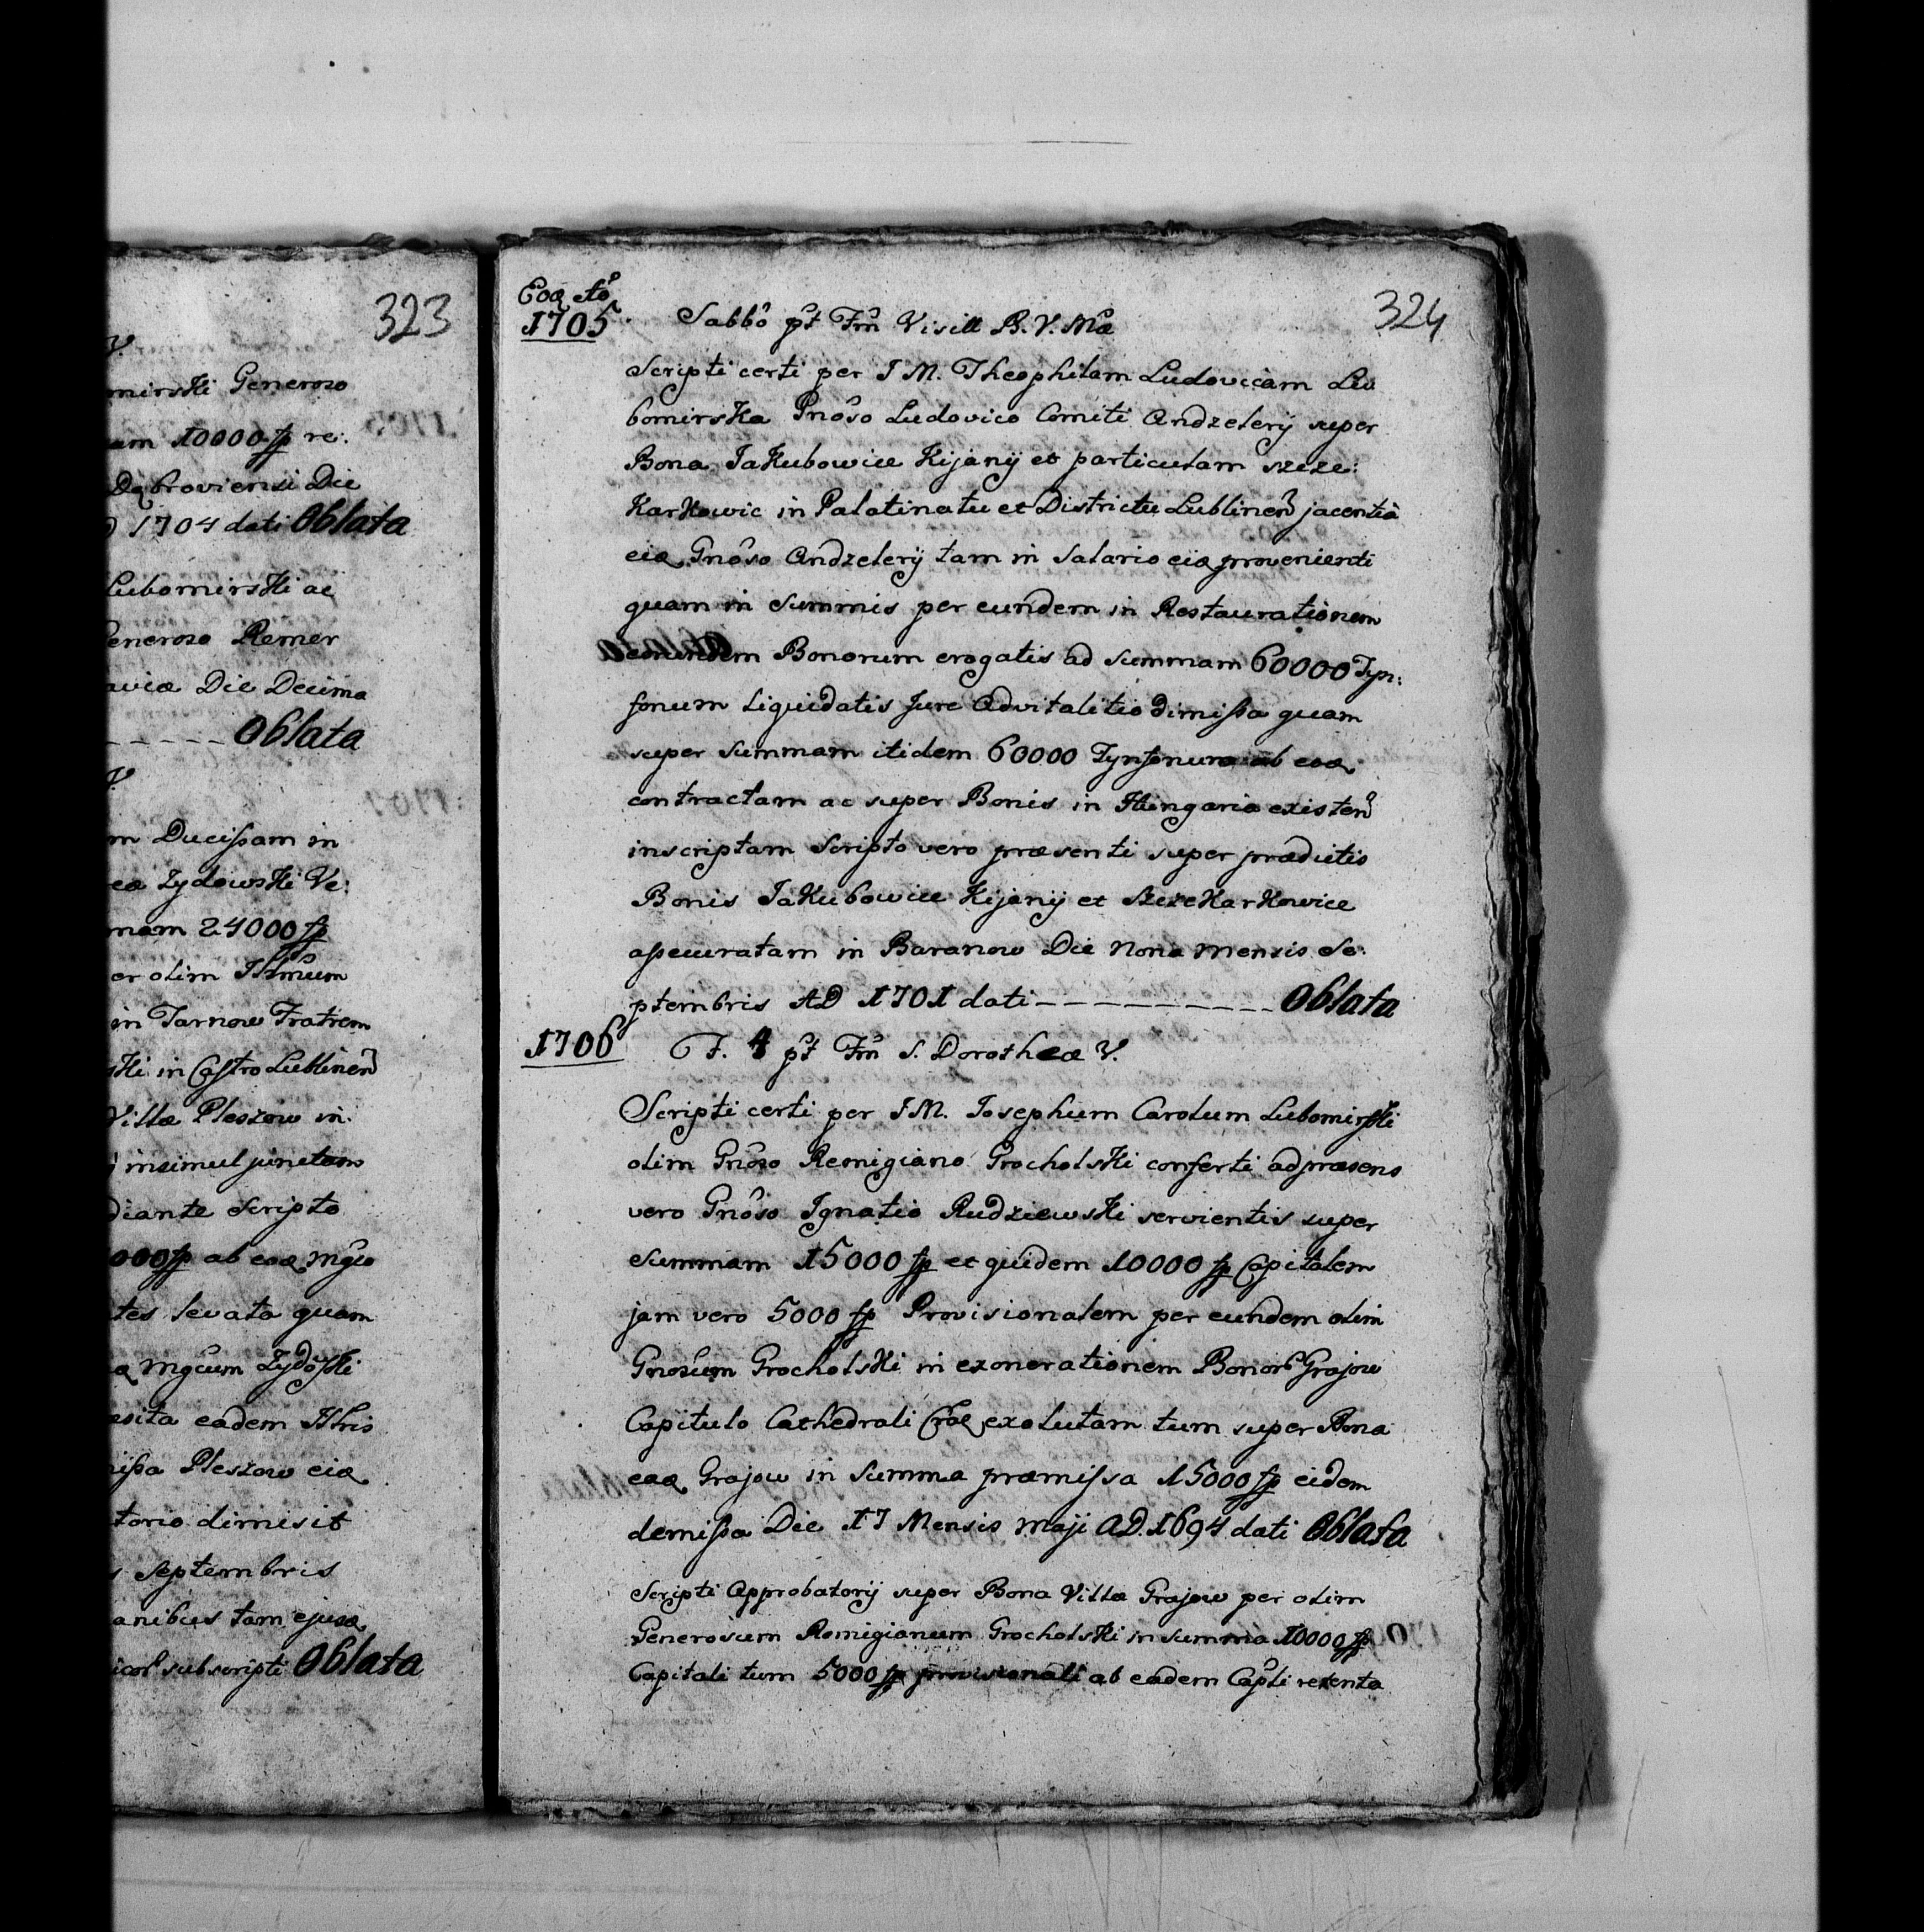 323
V.
mirski Generoso
am 10000 fp re:
Dąbroviensi Die
1704 dati Oblata
Lubomirski ac
Generoso Remer
aviæ Die Decima
Oblata
V.
m Ducißam in
Zydowski Ve:
mam 24000 fp
er olim Illmûm
in Tarnow Fratrem
ski in Castro Lublinen
Villæ Pleszow in
insimul junctam
diante Scripto
000 fp ab eoq mgco
tes levata quam
mgcum Zydoski
asita eadem Illris
mißa Pleszow eiq
torio dimisit
Septembris
anibus tam ejusq
subscripti Oblata
324
Eoq Ao
1705. Sabbô pt Fm Visitt B. V. Mæ
Scripti certi per I M. Theophilam Ludovicam Lu
bomirska Gnôso Ludovico Comiti Andzelerij super
Bona Jakubowice Kijanij et particulam szcze:
Karkowic in Palatinatu et Districtu Lublinen jacentia
eiq Gnôso Andzelerij tam in Salario eiq provenienti
quam in Summis per eundem in Restaurationem
eorundem Bonorum erogatis ad summam 60000 Tyn:
fonum Liquidatis Jure Advitalitio Dimißa quam
super summam itidem 60000 Tynfonum ab eoq
contractam ac super Bonis in Hungaria existen
inscriptam Scripto vero præsenti super prædictis
Bonis Jakubowice Kijanij et SzczeKarKowice
aßecuratam in Baranow Die Nona Mensis Se:
ptembris AD 1701 dati - - - - - - - - - Oblata
1706 F. 4 pt Fm S. Dorotheæ V.
Scripti certi per I M. Josephum Carolum Lubomirski
olim Gnôso Remigiano Grocholski conferti ad præsens
vero Gnôso Ignatio Rudziewski servientis super
Summam 15000 fp et quidem 10000 fp Capitalem
jam vero 5000 fp Provisionalem per eundem olim
Gnosûm Grocholski in exonerationem Bonor Grajow
Capitulo Cathedrali Crac exolutam tum super Bona
eaq Grajow in Summa præmissa 15000 fp eidem
demißa Die 17 Mensis Maji AD. 1694 dati Oblata
Scripti Approbatorij super Bona Villæ Grajow per olim
Generosum Remigianum Grocholski in summa 10000 fp
Capitali tum 5000 fp provisionali ab eadem Capti retenta